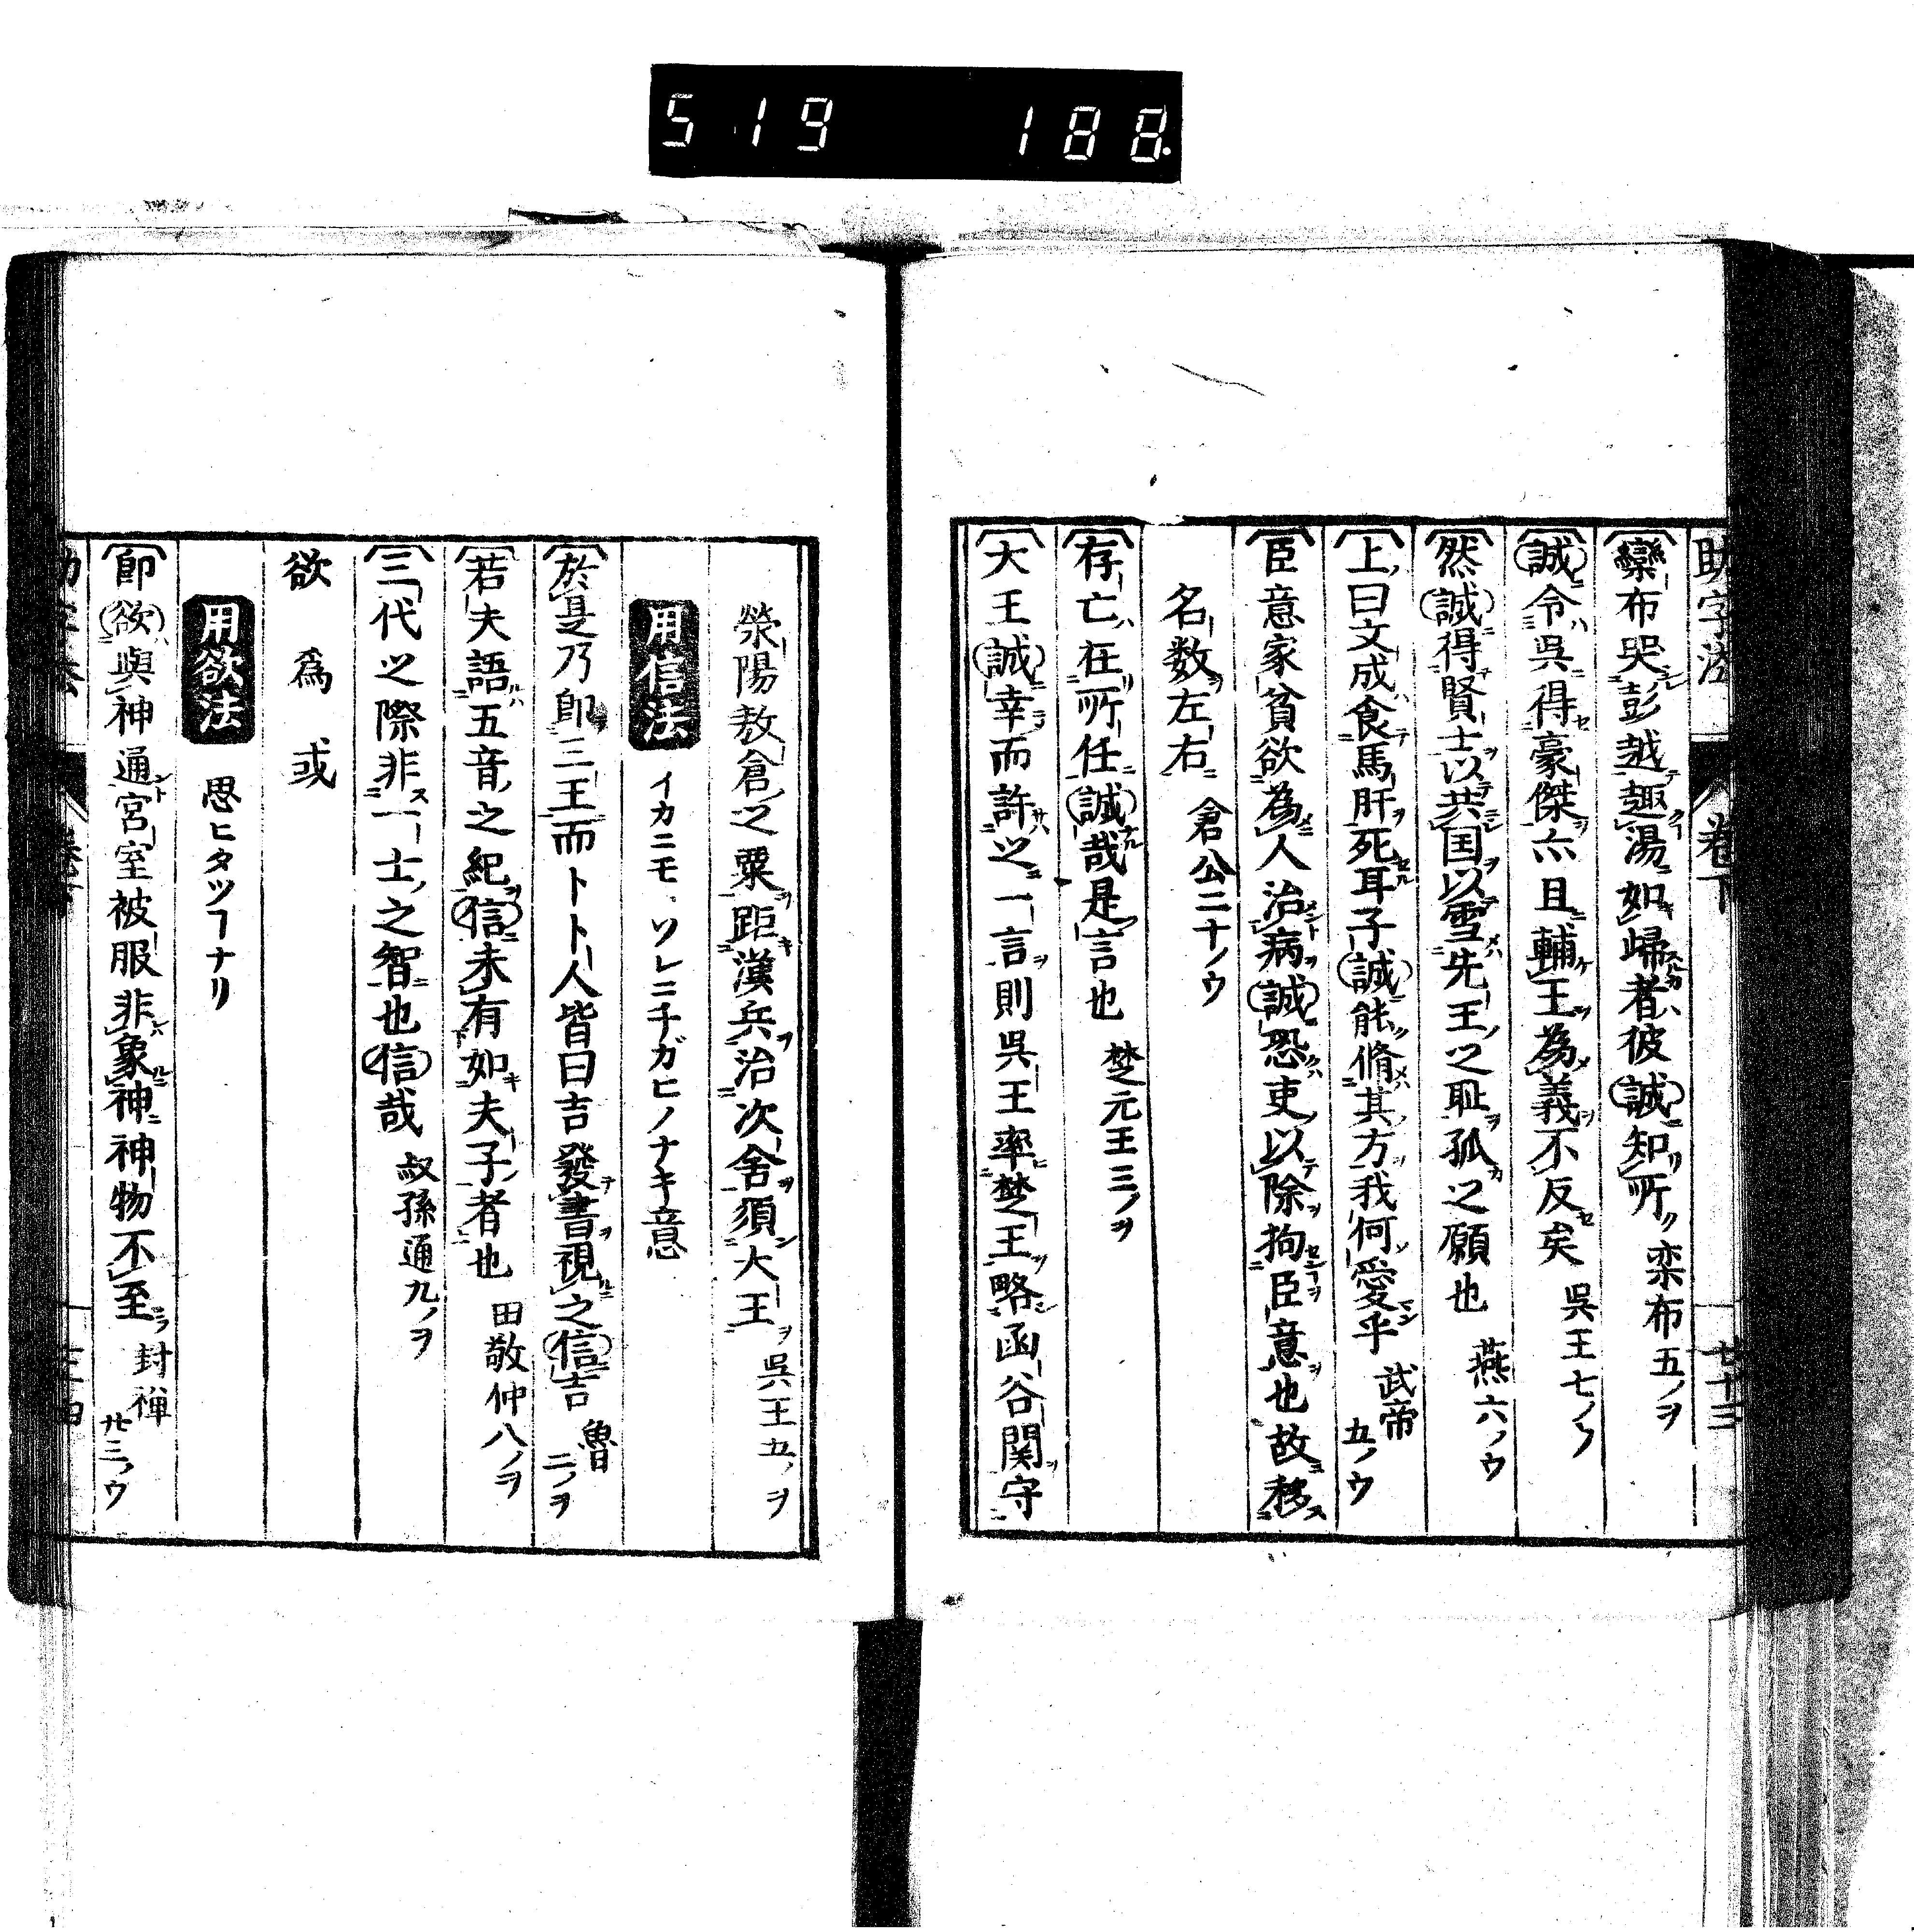 519 188
助字法 卷下 七十三
欒布哭彭越趣湯如歸者彼誠知所 栾布五ノヲ
誠令呉得豪傑亦且輔王為義不反矣 呉王七ノウ
然誠得賢士以共国以雪先王之耻孤之願也 燕六ノウ
上曰文成食馬肝死耳子誠能脩其方我何愛乎 武帝五ノウ
臣意家貧欲為人治病誠恐吏以除拘臣意也故移
名数左右 倉公二十ノウ
存亡在所任誠哉是言也 楚元王三ノヲ
大王誠幸而許之一言則呉王率楚王略函谷関守
滎陽敖倉之粟距漢兵治次舎須大王 呉王五ノヲ
用信法 イカニモソレニチガヒノナキ意
於是乃即三王而卜卜人皆曰吉發書視之信吉 魯二ノヲ
若夫語五音之紀信未有如夫子者也 田敬仲八ノヲ
三代之際非一士之智也信哉 叔孫通九ノヲ
欲 爲 或
用欲法 思ヒタツヿナリ
即欲與神通宮室被服非象神神物不至 封禅廿三ノウ